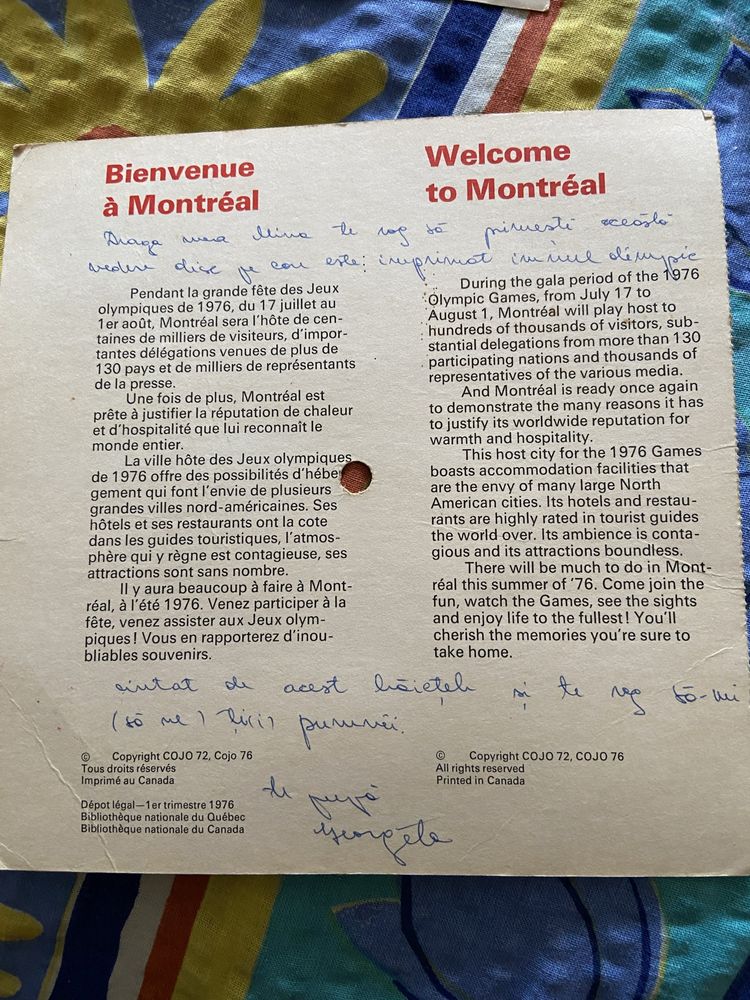 Bienvenue
à Montréal
Welcome
to Montréal
Draga mea Mina te rog să primești această
vedere disc pe care este: imprimat imnul olimpic
Pendant la grande fête des Jeux
olympiques de 1976, du 17 juillet au
1er août, Montréal sera l'hôte de cen-
taines de milliers de visiteurs, d'impor-
tantes délégations venues de plus de
130 pays et de milliers de représentants
de la presse.
Une fois de plus, Montréal est
prête à justifier la réputation de chaleur
et d'hospitalité que lui reconnaît le
monde entier.
La ville hôte des Jeux olympiques
de 1976 offre des possibilités d'héber
gement qui font l'envie de plusieurs
grandes villes nord-américaines. Ses
hôtels et ses restaurants ont la cote
dans les guides touristiques, l'atmos-
phère qui y règne est contagieuse, ses
attractions sont sans nombre.
Il y aura beaucoup à faire à Mont-
réal, à l'été 1976. Venez participer à la
fête, venez assister aux Jeux olym-
piques! Vous en rapporterez d'inou-
bliables souvenirs.
During the gala period of the 1976
Olympic Games, from July 17 to
August 1, Montréal will play host to
hundreds of thousands of visitors, sub-
stantial delegations from more than 130
participating nations and thousands of
representatives of the various media.
And Montréal is ready once again
to demonstrate the many reasons it has
to justify its worldwide reputation for
warmth and hospitality.
This host city for the 1976 Games
boasts accommodation facilities that
are the envy of many large North
American cities. Its hotels and restau-
rants are highly rated in tourist guides
the world over. Its ambience is conta-
gious and its attractions boundless.
There will be much to do in Mont-
réal this summer of '76. Come join the
fun, watch the Games, see the sights
and enjoy life to the fullest! You'll
cherish the memories you're sure to
take home.
cîntat de acest băiețel și te rog să-mi
(să ne) ții pumnii.
© Copyright COJO 72, Cojo 76
Tous droits réservés
Imprimé au Canada
© Copyright COJO 72, COJO 76
All rights reserved
Printed in Canada
Dépot légal—1er trimestre 1976
Bibliothèque nationale du Québec
Bibliothèque nationale du Canada
te pupă
Georgeta